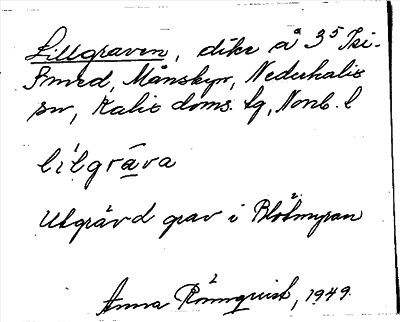 Lillgraven, dike å 3⁵ Tri-
Smed, Månskyn, Nederkalix
sn, Kalix doms. lg, Nonb. l
lìlgrà̱va
Utgrävd grav i Blötmyran
Anna Rönnqvist, 1949.